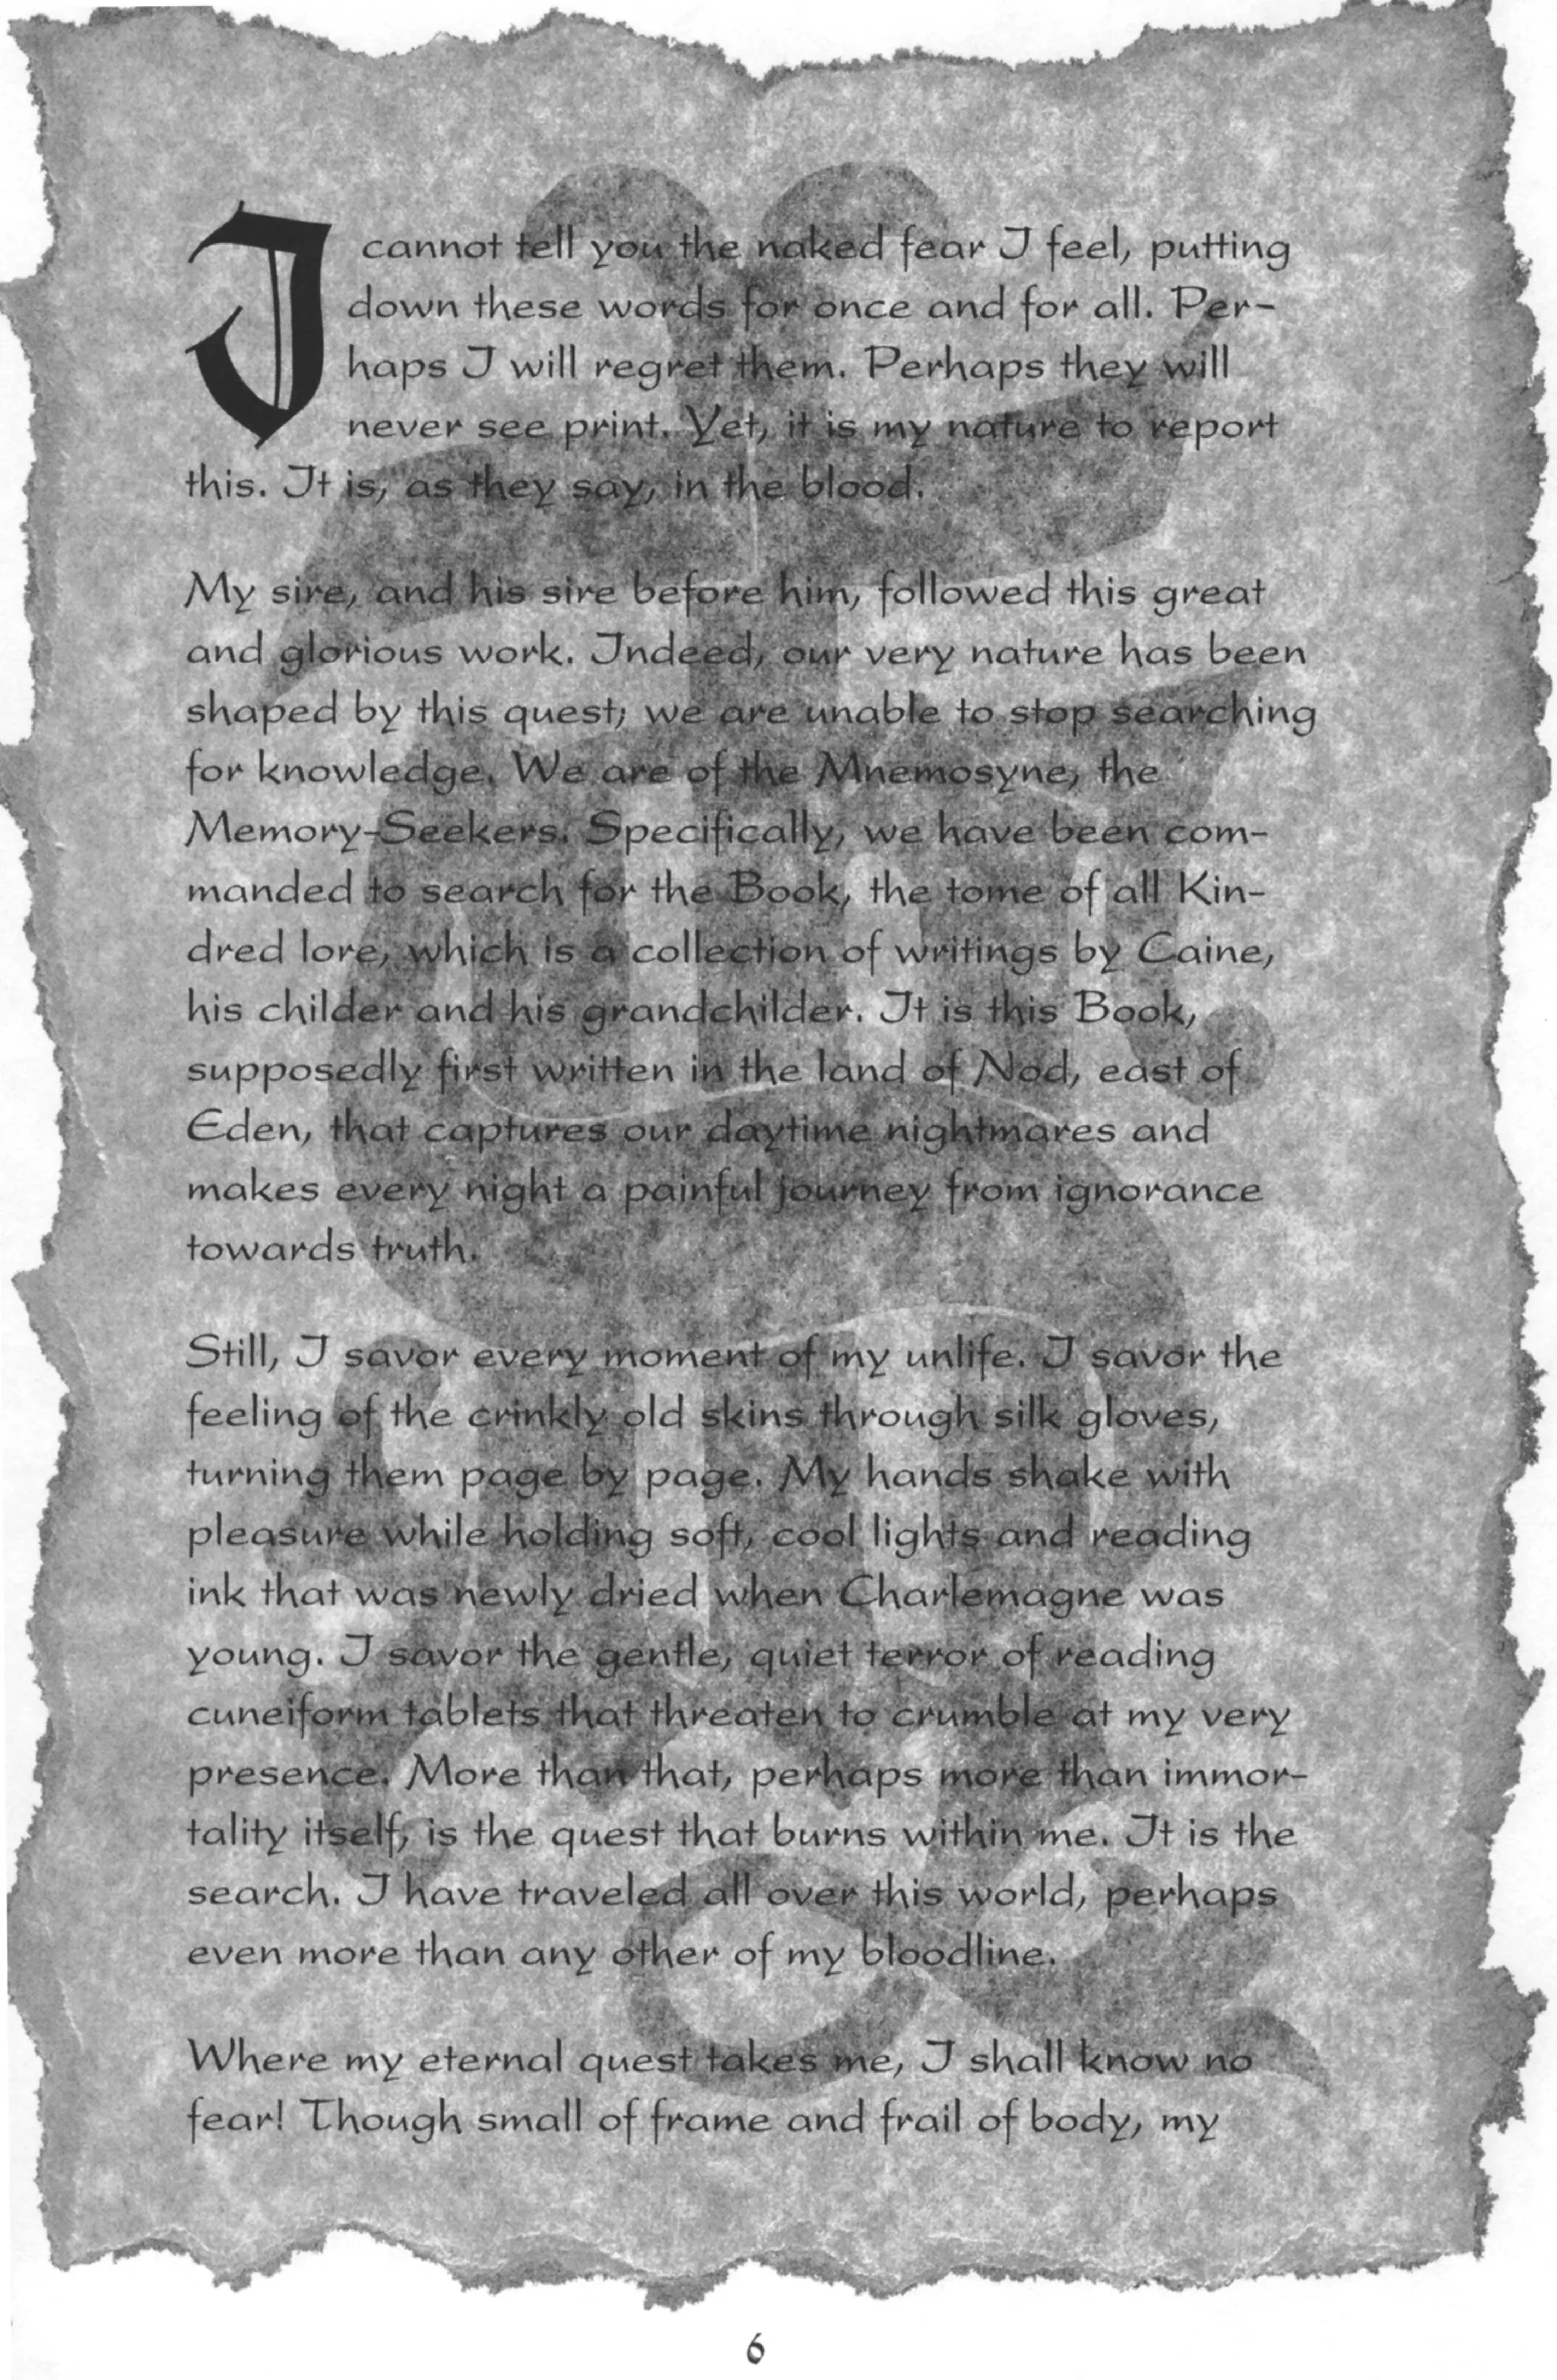 I cannot tell you the naked fear I feel, putting
down these words for once and for all. Per-
haps I will regret them. Perhaps they will
never see print. Yet, it is my nature to report
this. It is, as they say, in the blood.
My sire, and his sire before him, followed this great
and glorious work. Indeed, our very nature has been
shaped by this quest; we are unable to stop searching
for knowledge. We are of the Mnemosyne, the
Memory-Seekers. Specifically, we have been com-
manded to search for the Book, the tome of all Kin-
dred lore, which is a collection of writings by Caine,
his childer and his grandchilder. It is this Book,
supposedly first written in the land of Nod, east of
Eden, that captures our daytime nightmares and
makes every night a painful journey from ignorance
towards truth.
Still, I savor every moment of my unlife. I savor the
feeling of the crinkly old skins through silk gloves,
turning them page by page. My hands shake with
pleasure while holding soft, cool lights and reading
ink that was newly dried when Charlemagne was
young. I savor the gentle, quiet terror of reading
cuneiform tablets that threaten to crumble at my very
presence. More than that, perhaps more than immor-
tality itself, is the quest that burns within me. It is the
search. I have traveled all over this world, perhaps
even more than any other of my bloodline.
Where my eternal quest takes me, I shall know no
fear! Though small of frame and frail of body, my
6